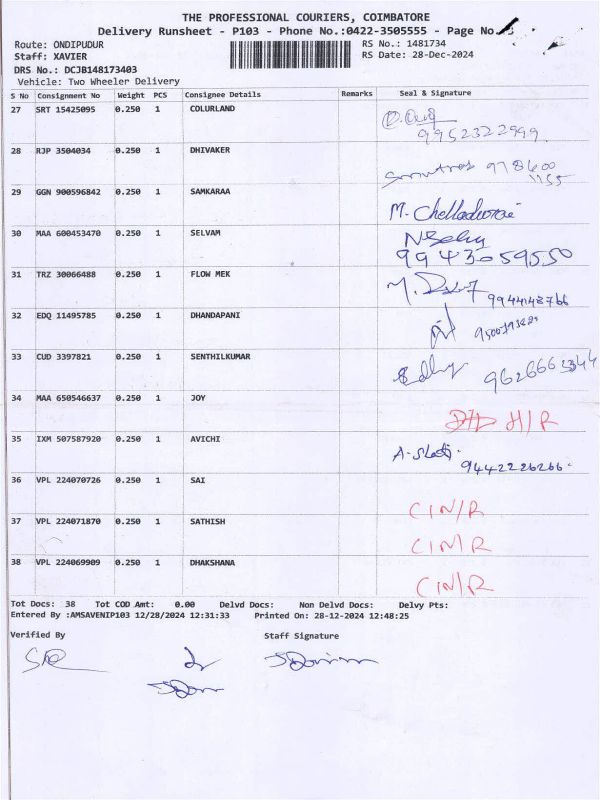 THE PROFESSIONAL COURIERS, COIMBATORE
Delivery Runsheet - P103 - Phone No.:0422-3505555 - Page No.
Route: ONDIPUDUR
RS No.: 1481734
Staff: XAVIER
RS Date: 28-Dec-2024
DRS No.: DCJB148173403
Vehicle: Two Wheeler Delivery
S No Consignment No Weight PCS Consignee Details Remarks Seal & Signature
27 SRT 15425095 0.250 1 COLURLAND
9952322999
28 RJP 3504034 0.250 1 DHIVAKER
978600
1155
29 GGN 900596842 0.250 1 SAMKARAA M. Chelladurai
30 MAA 600453470 0.250 1 SELVAM
9943059550
31 TRZ 30066488 0.250 1 FLOW MEK
9944148766
32 EDQ 11495785 0.250 1 DHANDAPANI
33 CUD 3397821 0.250 1 SENTHILKUMAR
34 MAA 650546637 0.250 1 JOY
35 IXM 507587920 0.250 1 AVICHI
9442226266.
36 VPL 224070726 0.250 1 SAI
CIN/R
37 VPL 224071870 0.250 1 SATHISH
CIN/R
38 VPL 224069909 0.250 1 DHAKSHANA
CIN/R
Tot Docs: 38 Tot COD Amt: 0.00 Delvd Docs: Non Delvd Docs: Delvy Pts:
Entered By :AMSAVENIP103 12/28/2024 12:31:33 Printed On: 28-12-2024 12:48:25
Verified By Staff Signature